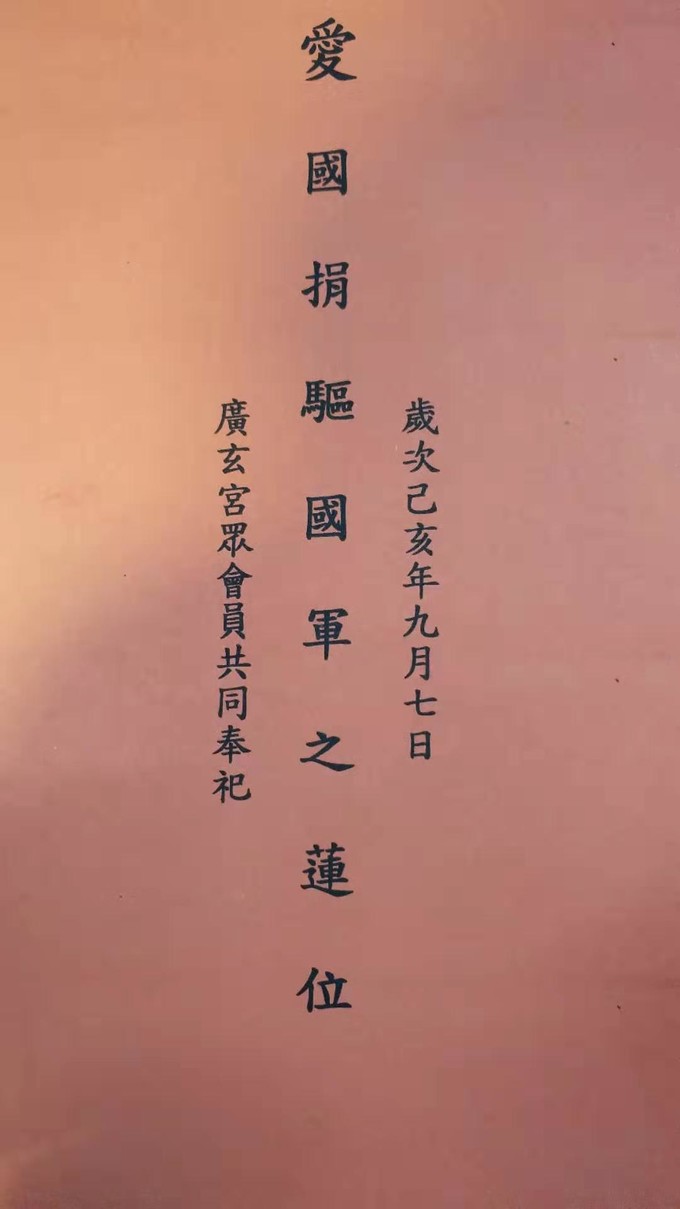 歲次己亥年九月七日
愛國捐驅國軍之蓮位
廣玄宮眾會員共同奉祀